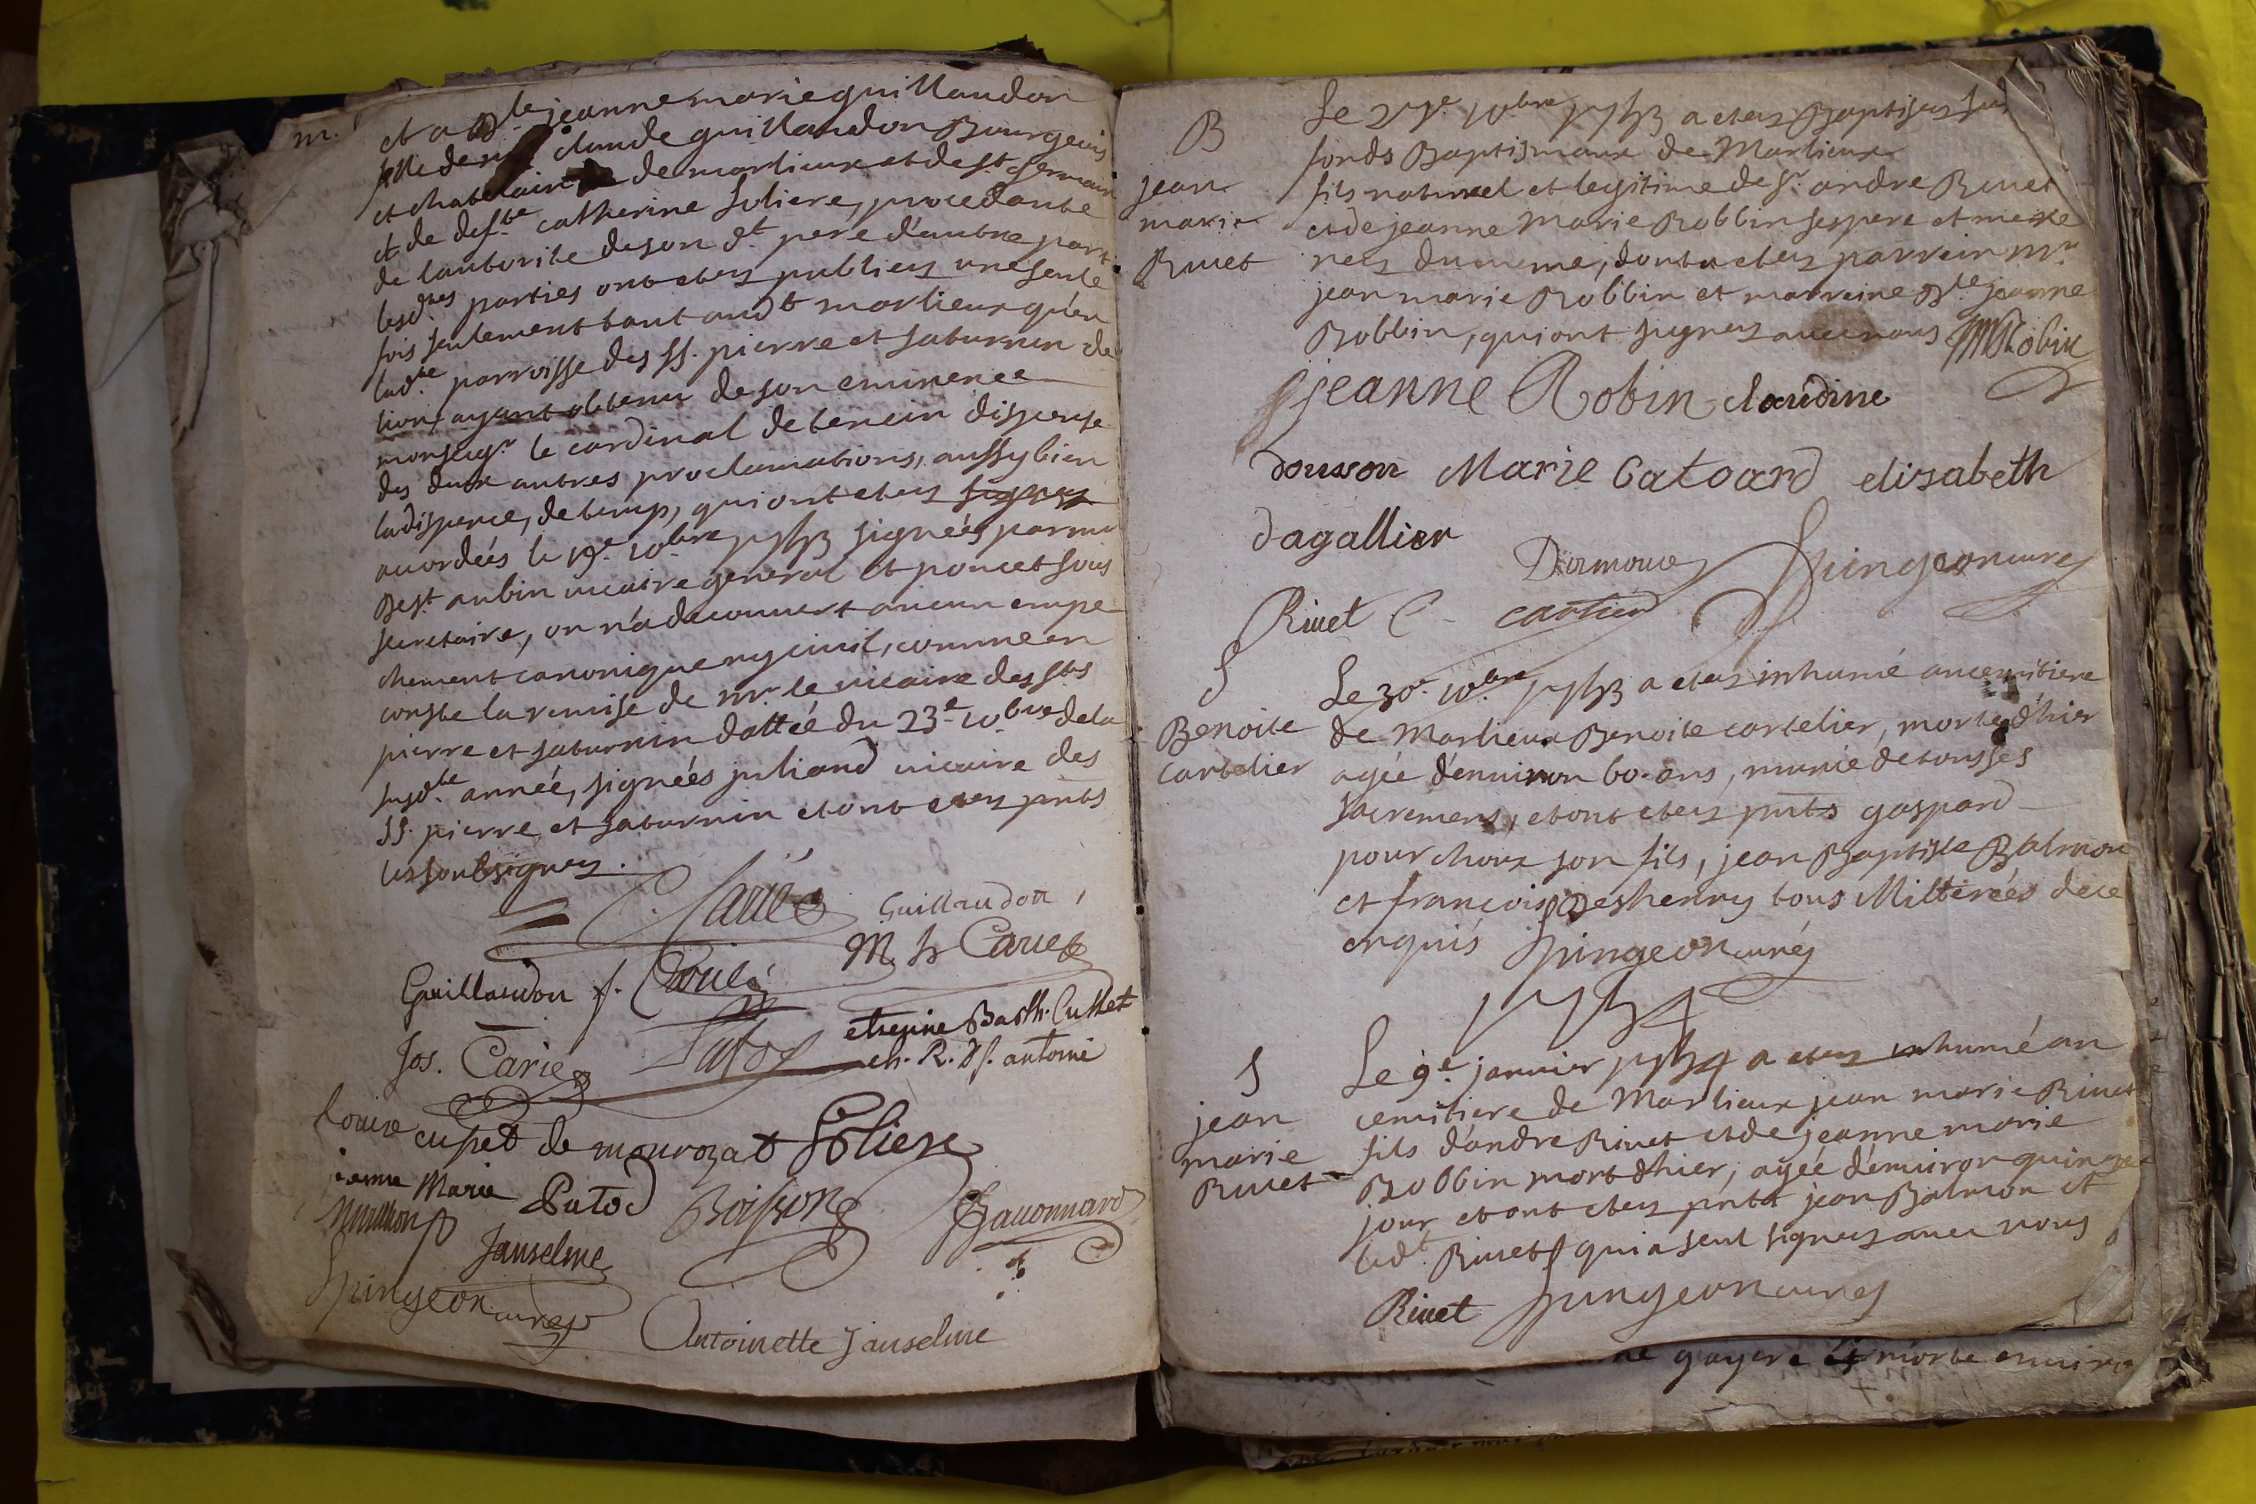 m.
et a Dlle jeanne marie guillaudon
fille de claude guillaudon Bourgeois
et chatelain de marlieux et de st. Germain
et de defte. catherine soliere, procedante
de lautorité de son dt. pere d'autre part
lesdites parties ont etez publiez une seule
fois seulement tant audt marlieux qu'en
ladte parroisse des SS. pierre et saturnin de
lion, ayant obtenu de son eminence
monseigr. le cardinal de tencin dispense
des deux autres proclamations, aussy bien
la dispence, de temp, qui ont etez signez
accordées le 19e. 10bre 1753 signées par mr
De st. aubin vicaire general et poncet sous
secretaire, on n'a decouvert aucun empe
chement canonique ny civil, comme en
conste la remise de mr. le vicaire des sts
pierre et saturnin dattée du 23e. 10bre de la
susdte. année, signées juliand vicaire des
SS. pierre et saturnin et ont etez pnts
les soubsignez.
Carié Guillaudon
Guillaudon f. Carié M. Carié
Jos. Carié Patos etienne Barth. Cusset
ch. R. d. s. antoine
louise cuset de mourozat Soliere
jeanne Marie Patod Boisson Gauonnard
Janselme
Spingeon curez
Antoinette Janselme
B
jean
marie
Rivet
Le 27e. 10bre 1753 a etez Baptisez sur
fonds Baptismaux de Marlieux
fils naturel et legitime de sr. andre Rivet
et de jeanne Marie Robbin ses pere et mere
nez du meme, dont a etez parrein mr
jean marie Robbin et marreine Dlle jeanne
Robbin, qui ont signez avec nous JM Robin
jeanne Robin claudine
douson Marie Catoard elisabeth
dagallier
Spingeon curez
Rivet C. cartier
S
Benoite
Cartelier
Le 30e. 10bre 1753 a etez inhumé au cemitiere
de Marlieux Benoite cartelier, morte d'hier
agée d'environ 60. ans, munie de tous ses
sacremens, et ont etez pnts gaspard
pourchoux son fils, jean Baptiste Balmon
et françois Deshenry tous Milterées de ce
enquis Spingeon curéz
1754
S
jean
marie
Rivet
Le 9e. janvier 1754 a etez inhumé au
cemitiere de Marlieux jean marie Rivet
fils d'andre Rivet et de jeanne marie
Bobbin mort d'hier, agée d'environ quinze
jour et ont etez pnts jean Balmon et
ledt. Rivet qui a seul signez avec nous
Rivet Spingeon curez
ne gayere morte environ